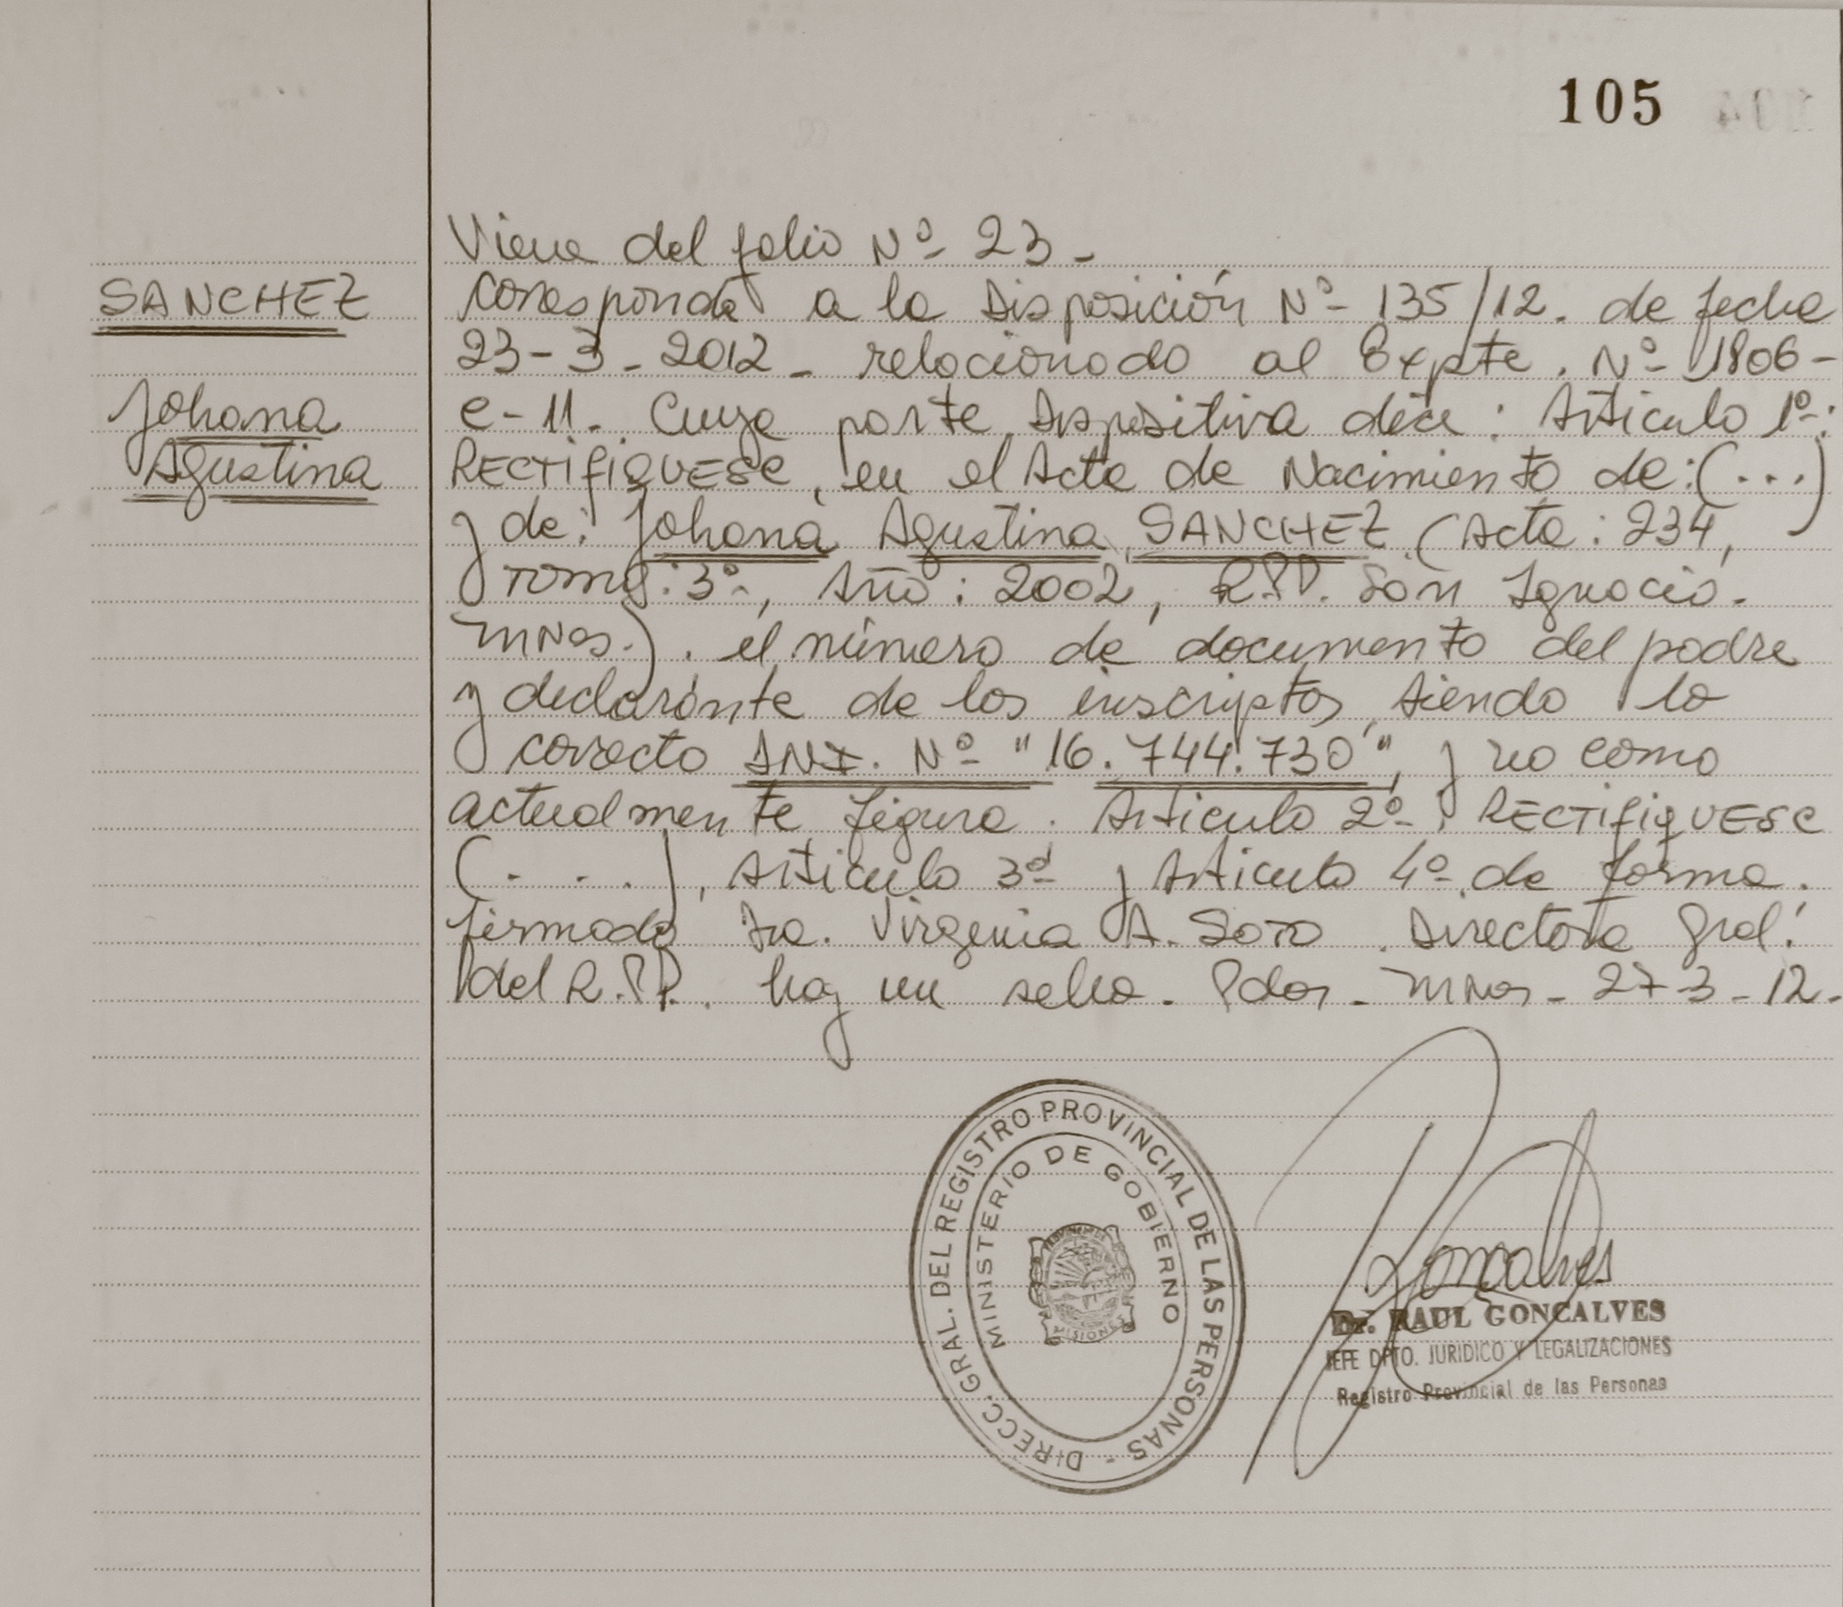 105
SANCHEZ
Johana
Agustina
Viene del folio Nº 23 -
Corresponde a la Disposición Nº 135/12. de fecha
23-3-2012 - relacionado al Expte. Nº 1806-
e-11. Cuya parte Dispositiva dice: Artículo 1º:
RECTIFIQUESE, en el Acta de Nacimiento de: (...)
y de: Johana Agustina SANCHEZ (Acta: 234,
Tomo: 3º, Año: 2002, R.P.P. San Ignacio.
Mnes.). el número de documento del padre
y declarante de los inscriptos, siendo lo
correcto DNI. Nº "16.744.730", y no como
actualmente figura. Artículo 2º: RECTIFIQUESE
(. . .), Artículo 3º y Artículo 4º de forma.
firmado Dra. Virgenia A. Soto. Directora Gral.
del R.P.P. hay un sello. Pdas - Mnes - 27-3-12.
DIRECC. GRAL. DEL REGISTRO PROVINCIAL DE LAS PERSONAS -
MINISTERIO DE GOBIERNO
MISIONES
Goncalves
Dr. RAUL GONCALVES
JEFE DPTO. JURIDICO Y LEGALIZACIONES
Registro Provincial de las Personas